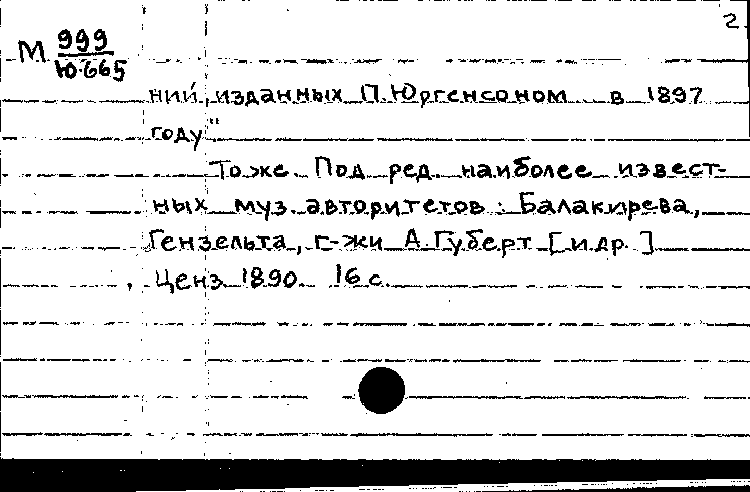 2.
М 999
Ю-665
ний, изданных П. Юргенсоном в 1897
году"
То же. Под ред. наиболее извест-
ных муз. авторитетов: Балакирева,
Гензельта, г-жи А. Губерт [и др.]
Ценз. 1890. 16 с.